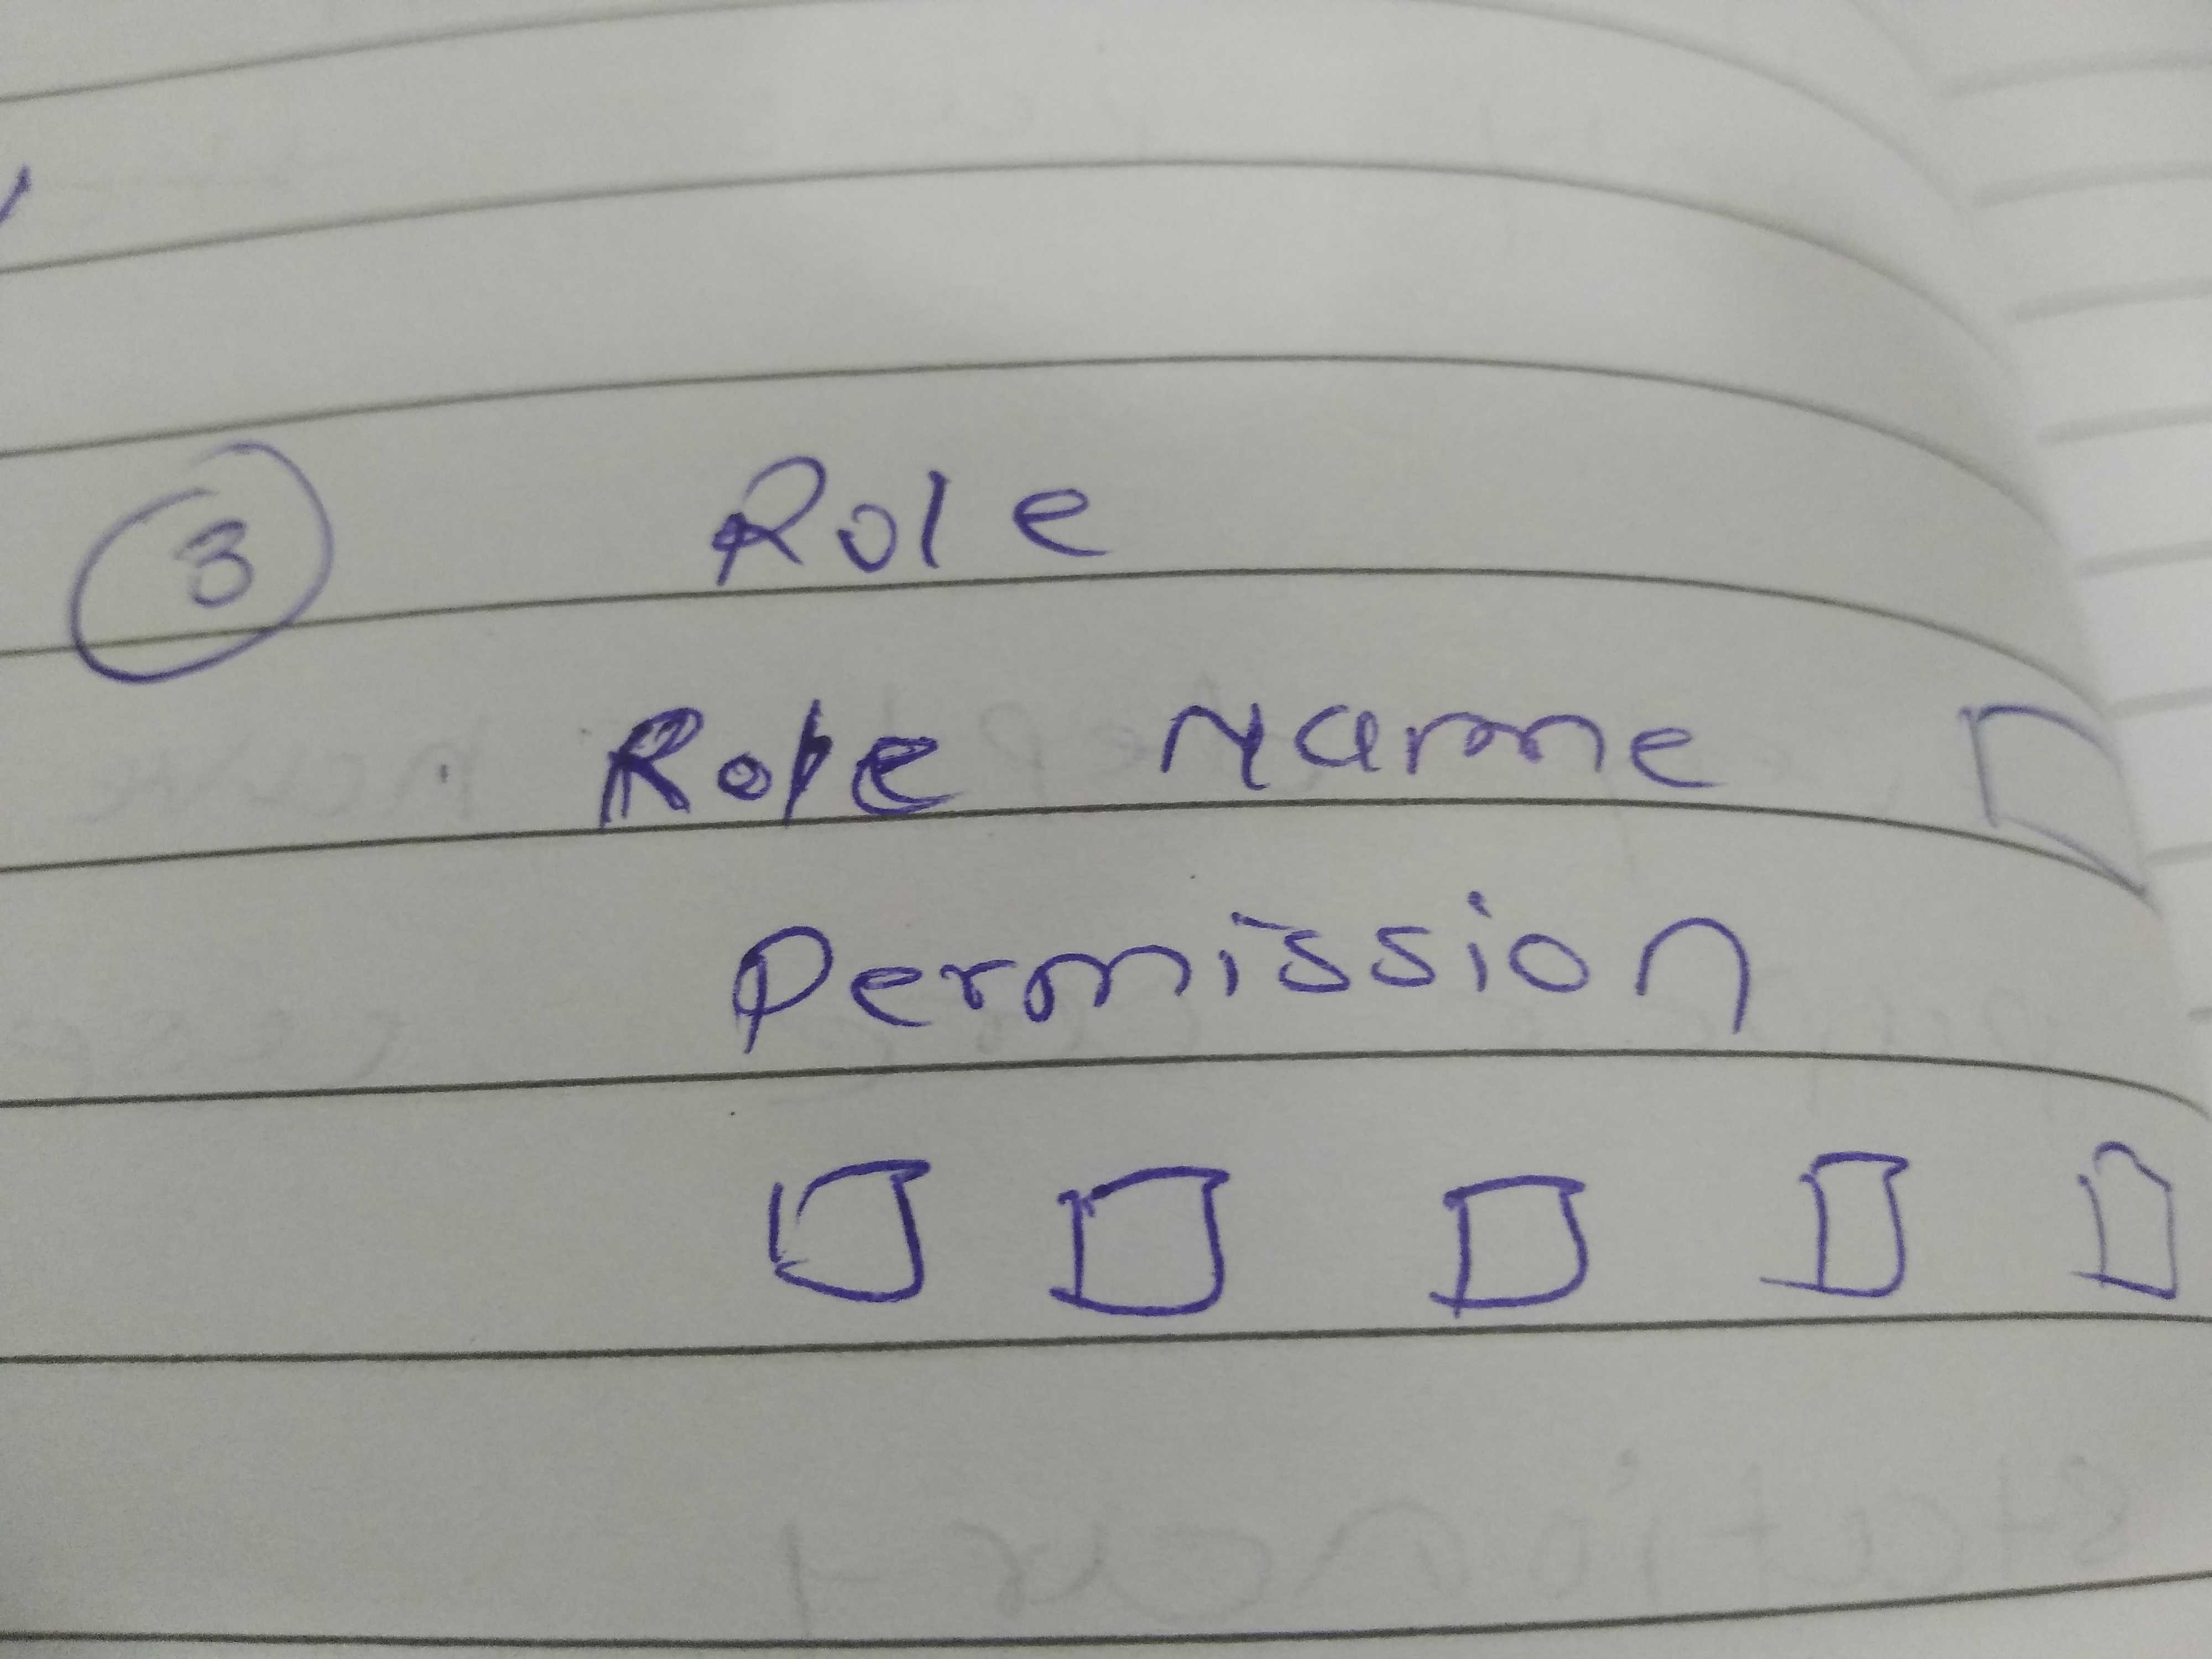 3 Role
Role Name
Permission